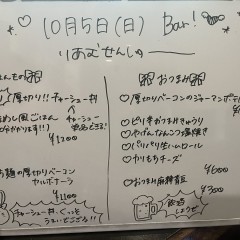 10月5日(日) Bar!
りあむせんしゅー
厚切り!! チャーシュー丼
めし風ごはん
¥1200
麺の厚切りベーコン
カルボナーラ
¥1100
チャーシュー丼、ぐっと
うまいでござる!!
おつまみ
♡厚切りベーコンのジャーマンポテ
♡ピリ辛おつまみきゅうり
♡やげんなんこつ唐揚げ
♡パリパリ生ハムロール
♡カリもちチーズ
¥600
♡おつまみ麻辣青豆
¥300